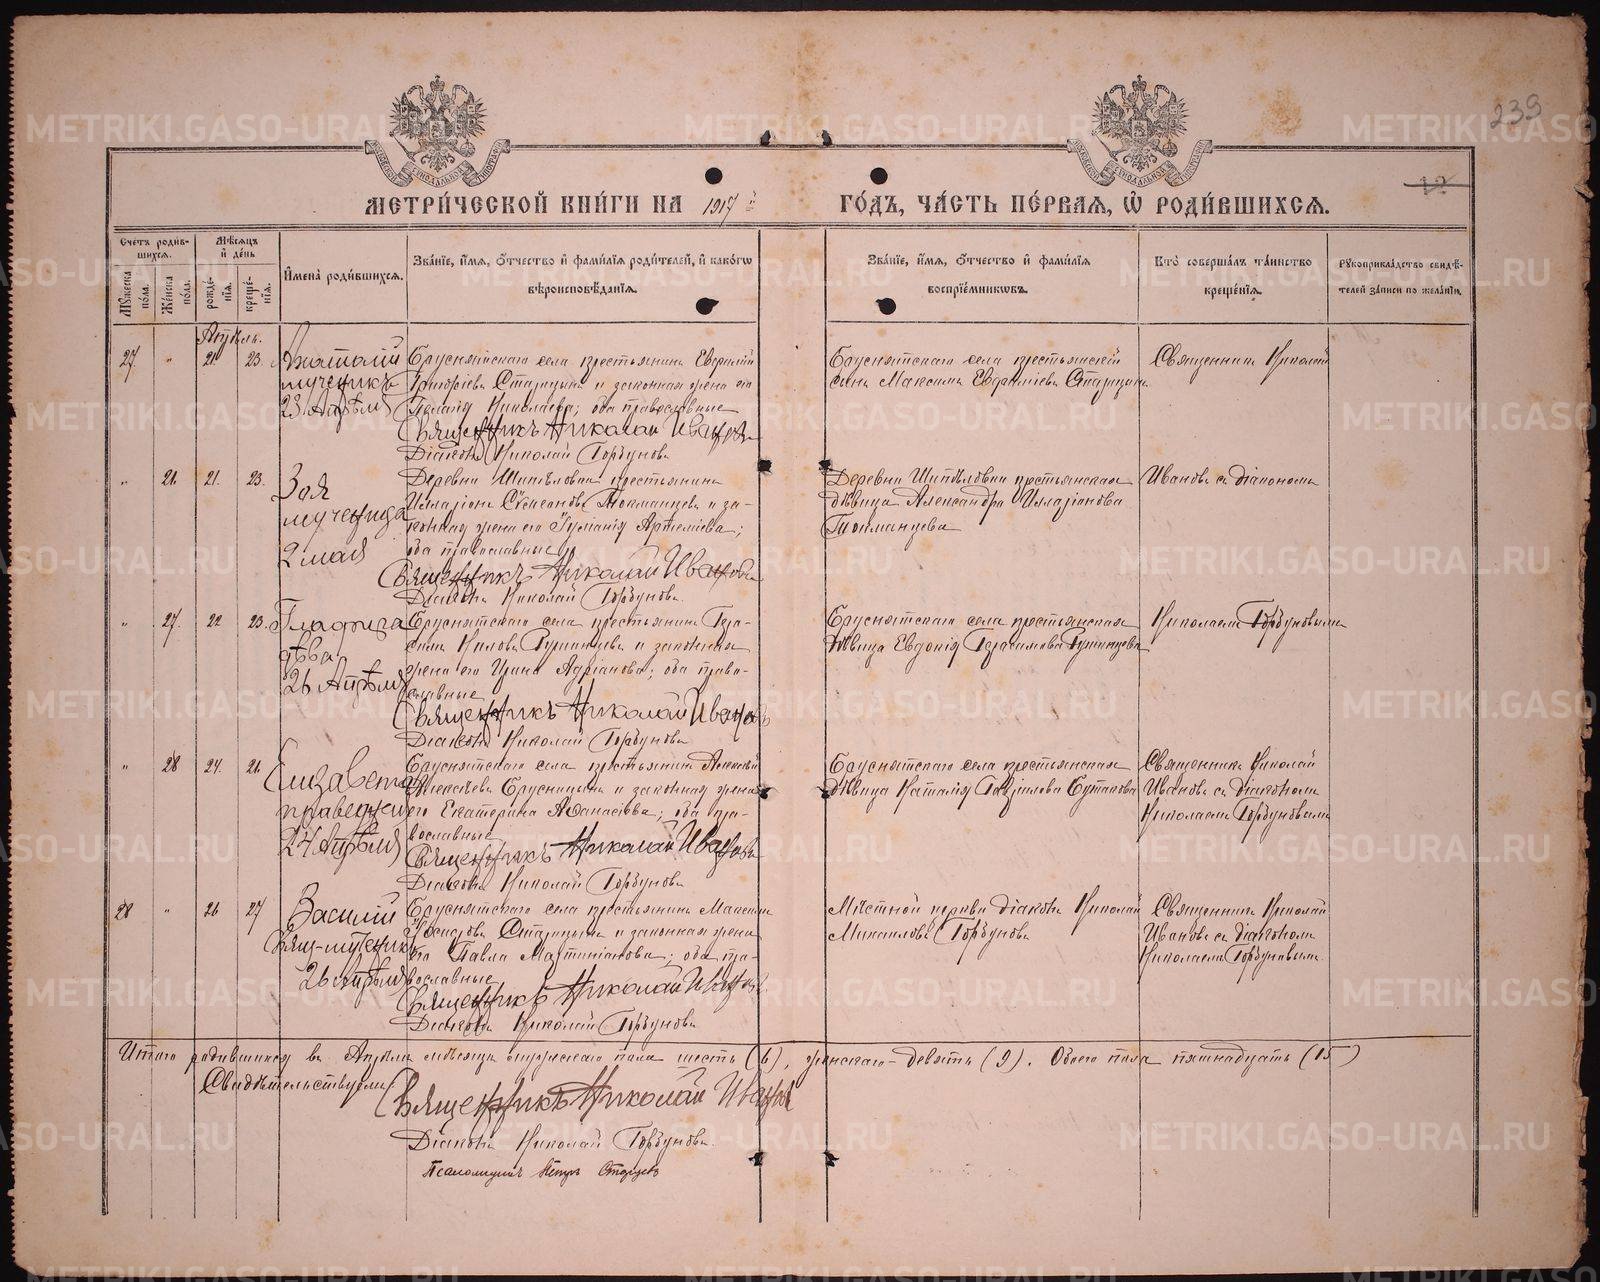 239
12
МЕТРИЧЕСКОЙ КНИГИ НА 1917й ГОДЪ, ЧАСТЬ ПЕРВАЯ, Ѡ РОДИВШИХСЯ.
Счетъ родившихся.
Мужеска пола.
Женска пола.
Мѣсяцъ и день
рождения.
крещения.
Имена родившихся.
Званіе, имя, отчество и фамилія родителей, и какогѡ вѣроисповѣданія.
Званіе, имя, отчество и фамилія воспріемниковъ.
Кто совершалъ таинство крещенія.
Рукоприкладство свидѣтелей записи по желанію.
Апрѣль.
27 " 21. 23. Анатолий
мученикъ
23 Апрѣля
Бруснятскаго села крестьянинъ Евдокий
Григорiевъ Старицынъ и законная жена его
Пелагiя Николаева; оба православные
Священникъ Николай Ивановъ
Дiаконъ Николай Горбуновъ
Бруснятскаго села крестьянскiй
сынъ Максимъ Евдокiевъ Старицынъ
Священникъ Николай
" 26. 21. 23. Зоя
мученица
2 мая
Деревни Шипѣловки крестьянинъ
Илларiонъ Сѵмеоновъ Токманцевъ и за-
конная жена его Iулианiя Артемiева;
оба православные
Священникъ Николай Ивановъ
Дiаконъ Николай Горбуновъ.
Деревни Шипѣловки крестьянская
дѣвица Александра Илларiонова
Токманцева
Ивановъ съ дiакономъ
" 27. 22 23. Глафира
дѣва
26 Апрѣля
Бруснятскаго села крестьянинъ Гера-
симъ Ниловъ Румянцевъ и законная
жена его Ирина Адрiанова; оба право-
славные
Священникъ Николай Ивановъ
Дiаконъ Николай Горбуновъ
Бруснятскаго села крестьянская
дѣвица Евдокiя Герасимова
Николаемъ Горбуновымъ
" 28 24. 26. Елизавета
праведная
24 Апрѣля
Бруснятскаго села крестьянинъ Алексѣй
Алексѣевъ Брусницынъ и законная жена
его Екатерина Аѳанасiева; оба пра-
вославные
Священникъ Николай Ивановъ
Дiаконъ Николай Горбуновъ
Бруснятскаго села крестьянская
дѣвица Наталiя Гаврiилова Бутакова
Священникъ Николай
Ивановъ съ дiакономъ
Николаемъ Горбуновымъ
28 " 26 27 Василий
Свящ-мученикъ
26 Апрѣля
Бруснятскаго села крестьянинъ Максимъ
Старицынъ и законная жена
его Павла Мартинiанова; оба пра-
вославные
Священникъ Николай Ивановъ
Дiаконъ Николай Горбуновъ
Мѣстной церкви дiаконъ Николай
Михайловъ Горбуновъ
Священникъ Николай
Ивановъ съ дiакономъ
Николаемъ Горбуновымъ
Итого родившихся въ Апрѣлѣ мѣсяцѣ мужескаго пола шесть (6), женскаго-девять (9). Обоего пола пятнадцать (15)
Свидѣтельствуемъ:
Священникъ Николай Ивановъ
Дiаконъ Николай Горбуновъ.
Псаломщикъ Петръ
METRIKI.GASO-URAL.RU